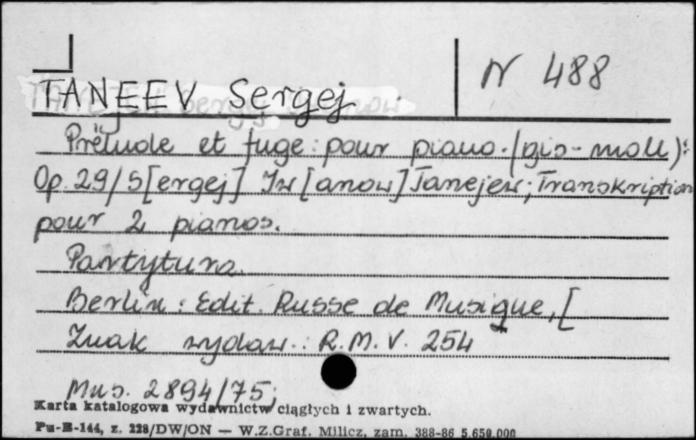 N 488
TANEEV Sergej
Prélude et fuge: pour piano. (gis-moll):
Op. 29/S[ergej] Iw[anow] Tanejew; Transkription
pour 2 pianos.
Partytura.
Berlin: Edit. Russe de Musique, [
Znak wydaw.: R.M.V. 254
Mus. 2894/75;
Karta katalogowa wydawnictw ciągłych i zwartych.
Pu-B-144, z. 228/DW/ON — W.Z.Graf. Milicz, zam. 388-86 5.650.000